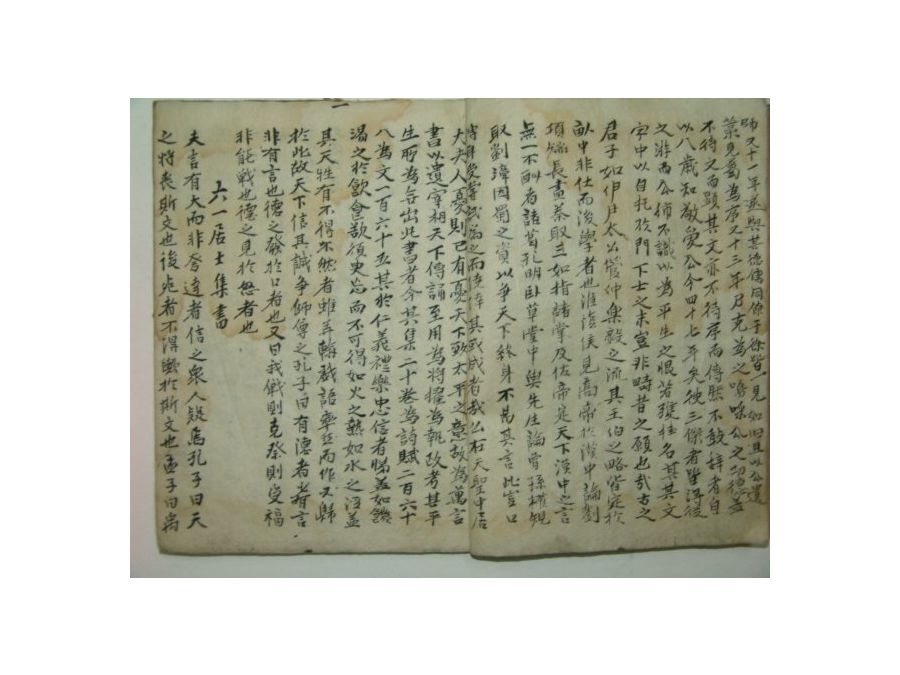 師又十一年遂與其德傳同僚于徐皆一見如旧且以公遺
藁見属為序又十三年乃克為之嗚呼公之功德盖
不待文而顕其文亦不待序而傳然不敢辞者自
以八歳知敬愛公今四十七年矣彼三傑者皆得從
之游而公独不識以為平生之恨若獲挂名其其文
字中以自托於門下士之末豈非疇昔之願也哉古之
君子如伊尹太公管仲楽毅之流其王伯之略皆定於
畎中非仕而後學者也淮陰侯見高帝於漢中論劉
項短長畫秦取三如指諸掌及佐帝定天下漢中之言
無一不酬者諸葛孔明臥草堂中與先生論曹孫権規
取劉璋因蜀之資以争天下終身不易其言此豈口
傳耳受嘗試為之而僥倖其或成者哉公在天聖中居
大夫人憂則已有憂天下致太平之意故為萬言
書以遺宰相天下傳誦至用為將擢為執政考其平
生所為無出此書者今其集二十巻為詩賦二百六十
八為文一百六十五其於仁義禮樂忠信孝悌盖如饑
渇之於飲食欲須臾忘而不可得如火之熱如水之湿盖
其天性有不得不然者雖弄翰戯語率然而作又歸
於此故天下信其誠争師尊之孔子曰有徳者者有言
非有言也德之發於口者也又曰我戦則克祭則受福
非能戦也德之見於怒者也
六一居士集書
夫言有大而非夸達者信之衆人疑焉孔子曰天
之將喪斯文也後死者不得與於斯文也孟子曰禹